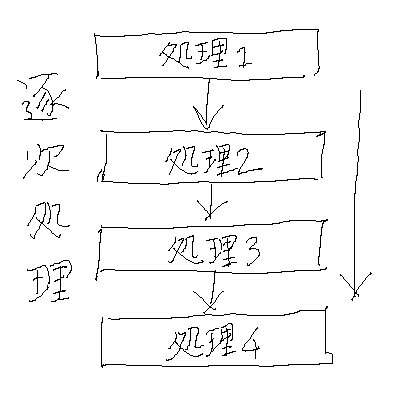 逐次処理
処理1
処理2
処理3
処理4